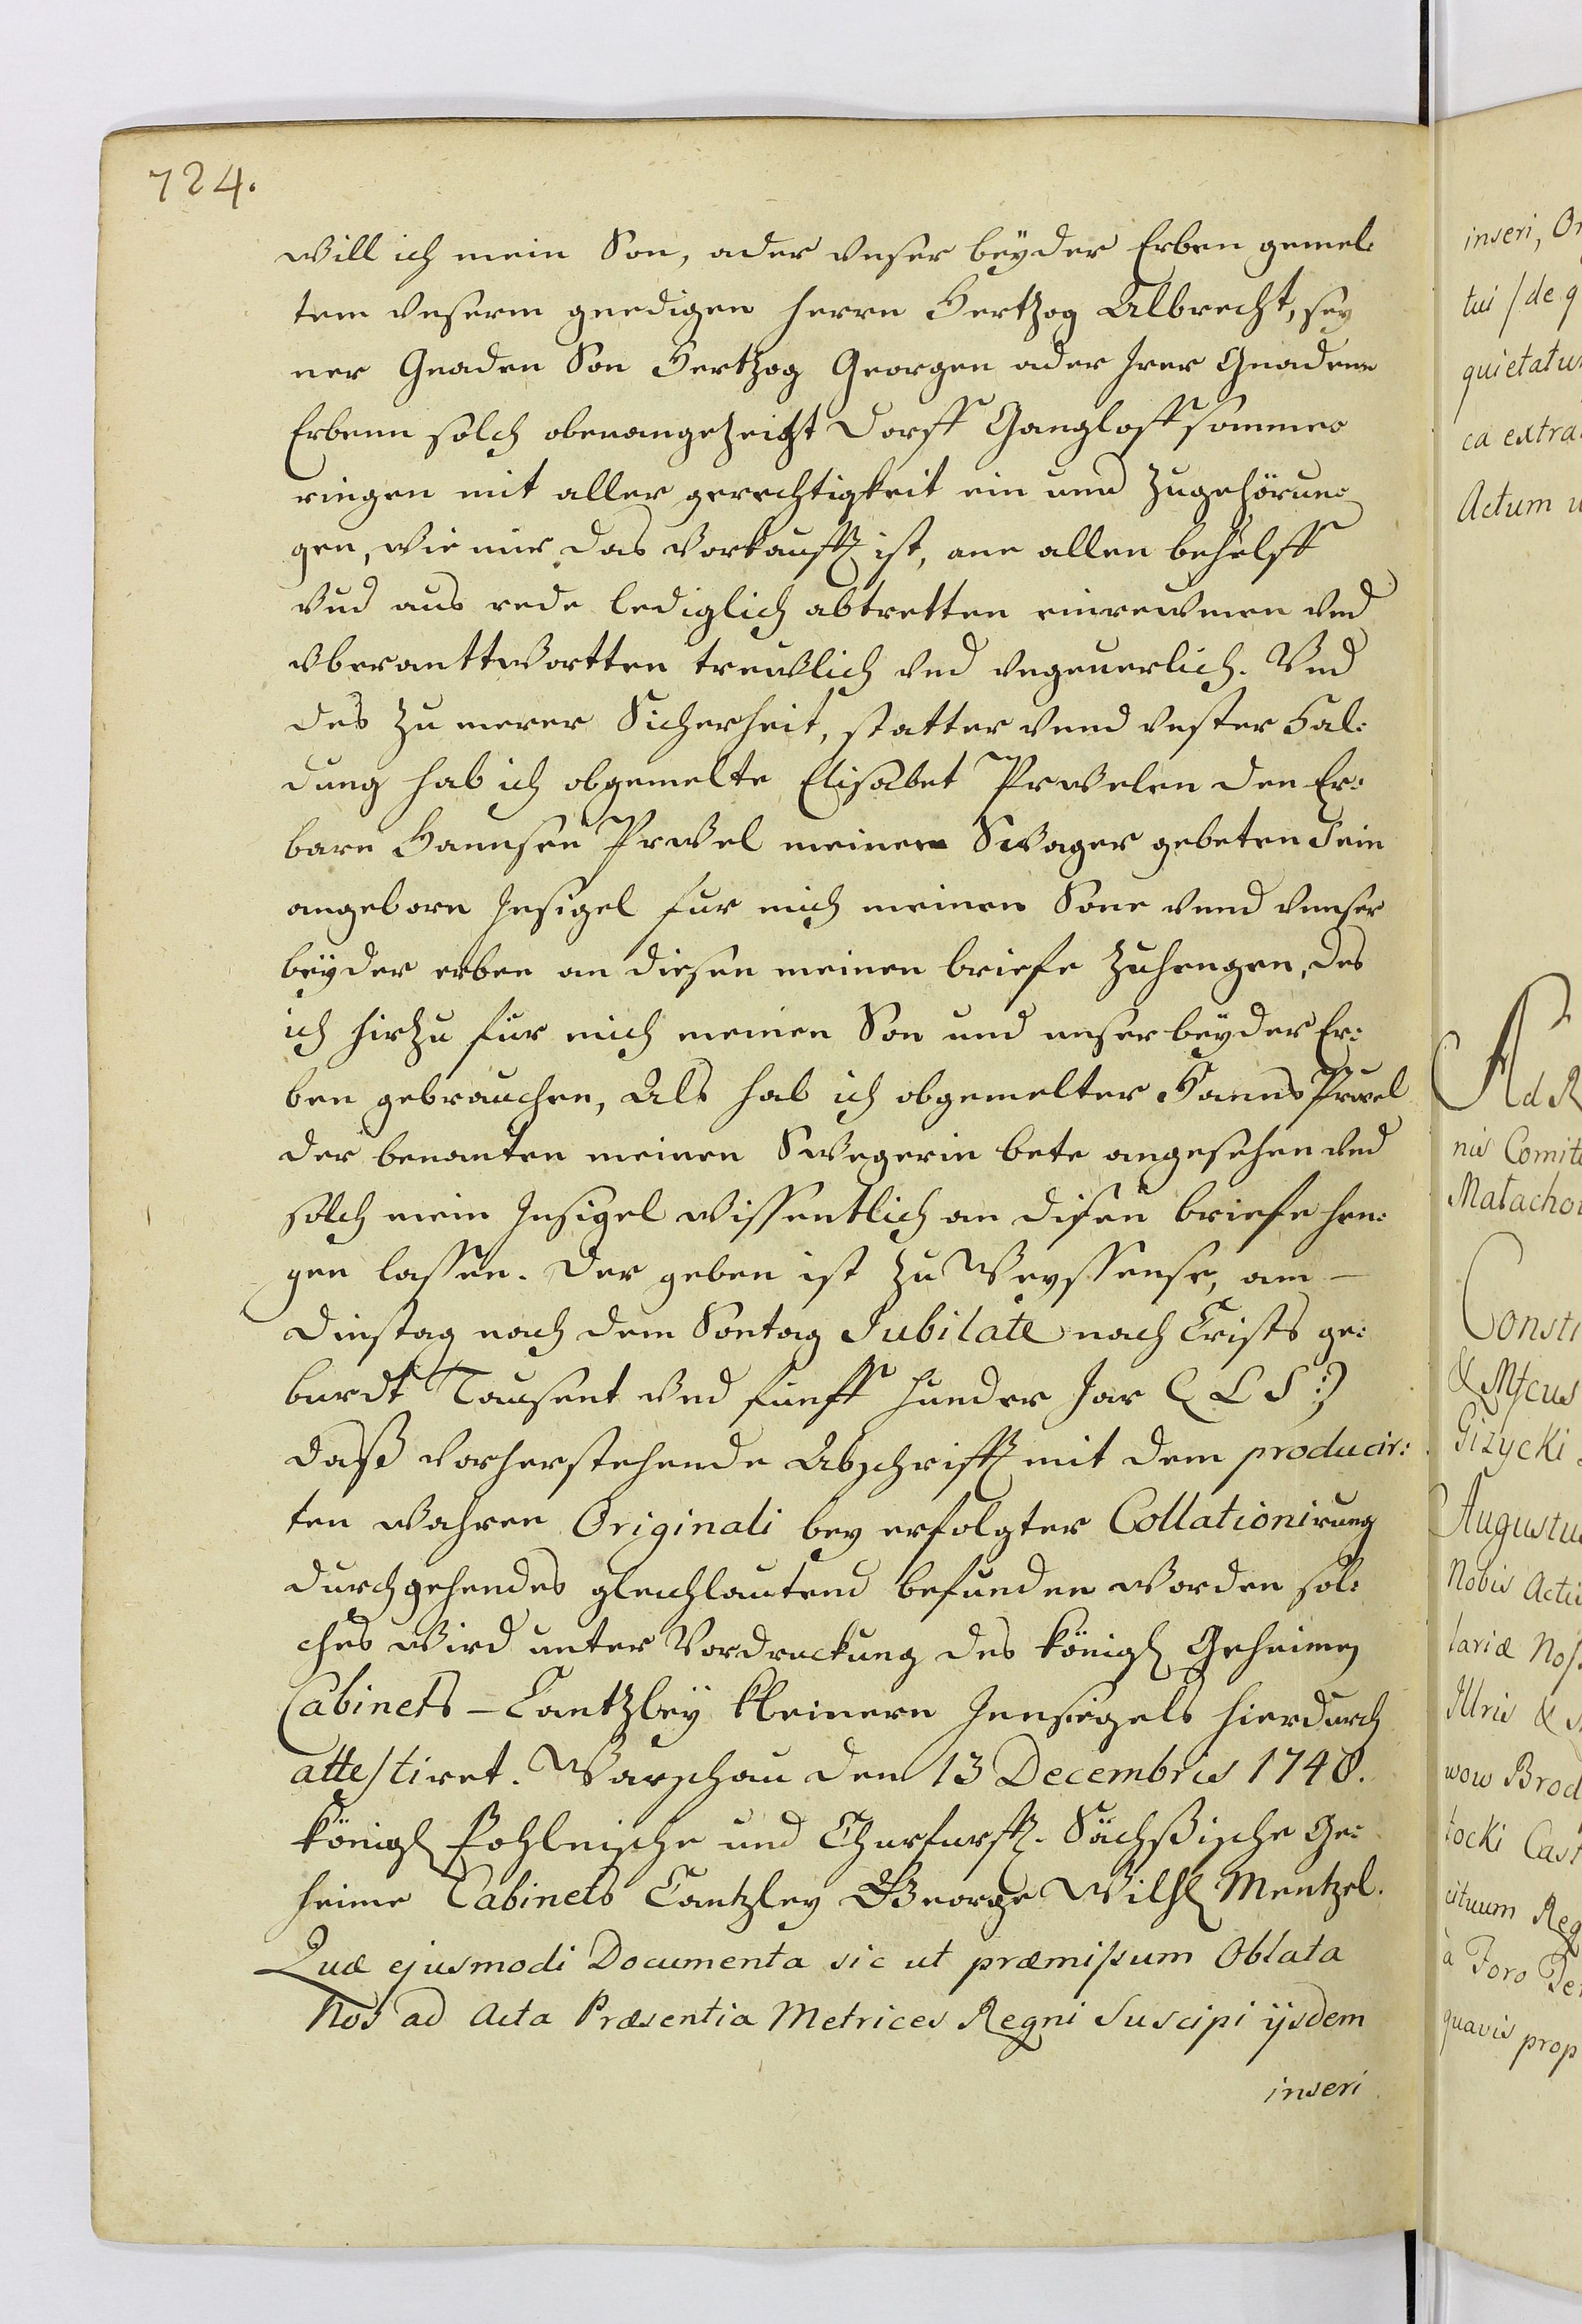 724.
will ich mein Son, ader vnser beyder Erben gemel:
tem vnserm gnedigen herrn Hertzog Albrecht, sey
ner Gnaden Son Hertzog Georgen ader Jrer Gnadenn
Erbenn solch obenangezeigt Dorff Gangloff sommer
ringen mit aller gerechtigkeit ein unnd zugehörun:
gen, wie mir das vorkaufft ist, ane allen behelff
vnd aus rede lediglich abtretten einrewmen vnd
vberanttwortten trewlich vnd vngeuerlich. Vnd
des zu merer Sicherheit, statter vnnd vester Hal:
dung hab ich obgemelte Elisabet Prwelen den Er:
barn Hannsen Prwel meinen Swager gebeten Sein
angeborn Jnsigel fur mich meinen Sone vnnd vnnser
beyder erben an diesen meinen briefe zuhengen, des
ich hirzu für mich meinen Son und unser beyder Er:
ben gebrauchen, Als hab ich obgemelter Hanns Prwel
der benanten meinen Swegerin bete angesehen vnd
solch mein Jnsigel wissentlich an disen briefe hen:
gen lassen. Der geben ist zu Weyssense, am –
Dinstag nach dem Sontag Jubilate nach Crists ge:
burdt Tausent vnd funff hunder Jar (L S:)
Daß vorherstehende Abschrifft mit dem producir:
ten wahren Originali bey erfolgter Collationirung
durchgehendes gleichlautend befunden worden sol:
ches wird unter Vordruckung des Königl Geheimen
Cabinets – Cantzley kleinern Jnnsiegels hierdurch
attestiret. Warschau den 13 Decembris 1748.
Königl Pohlnische und Churfurstl. Sächßische Ge:
heime Cabinets Cantzley George Wilhl Mentzel.
Quæ ejusmodi Documenta sic ut præmissum Oblata
Nos ad Acta Præsentia Metrices Regni Suscipi ijsdem
inseri
inseri, Or
tui / de q
quietatu
ca extra
Actum u
Ad R
nis Comit
Matacho
Consti
& Mfcus
Gizycki
Augustu
Nobis Acti
lariæ Nos
Illris &
wow Brod
tocki Cast
ituum Reg
à Foro Ter
quavis prop